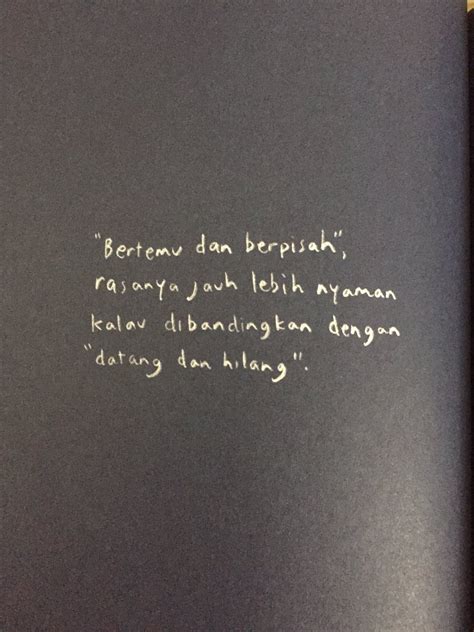 "Bertemu dan berpisah",
rasanya jauh lebih nyaman
kalau dibandingkan dengan
"datang dan hilang".